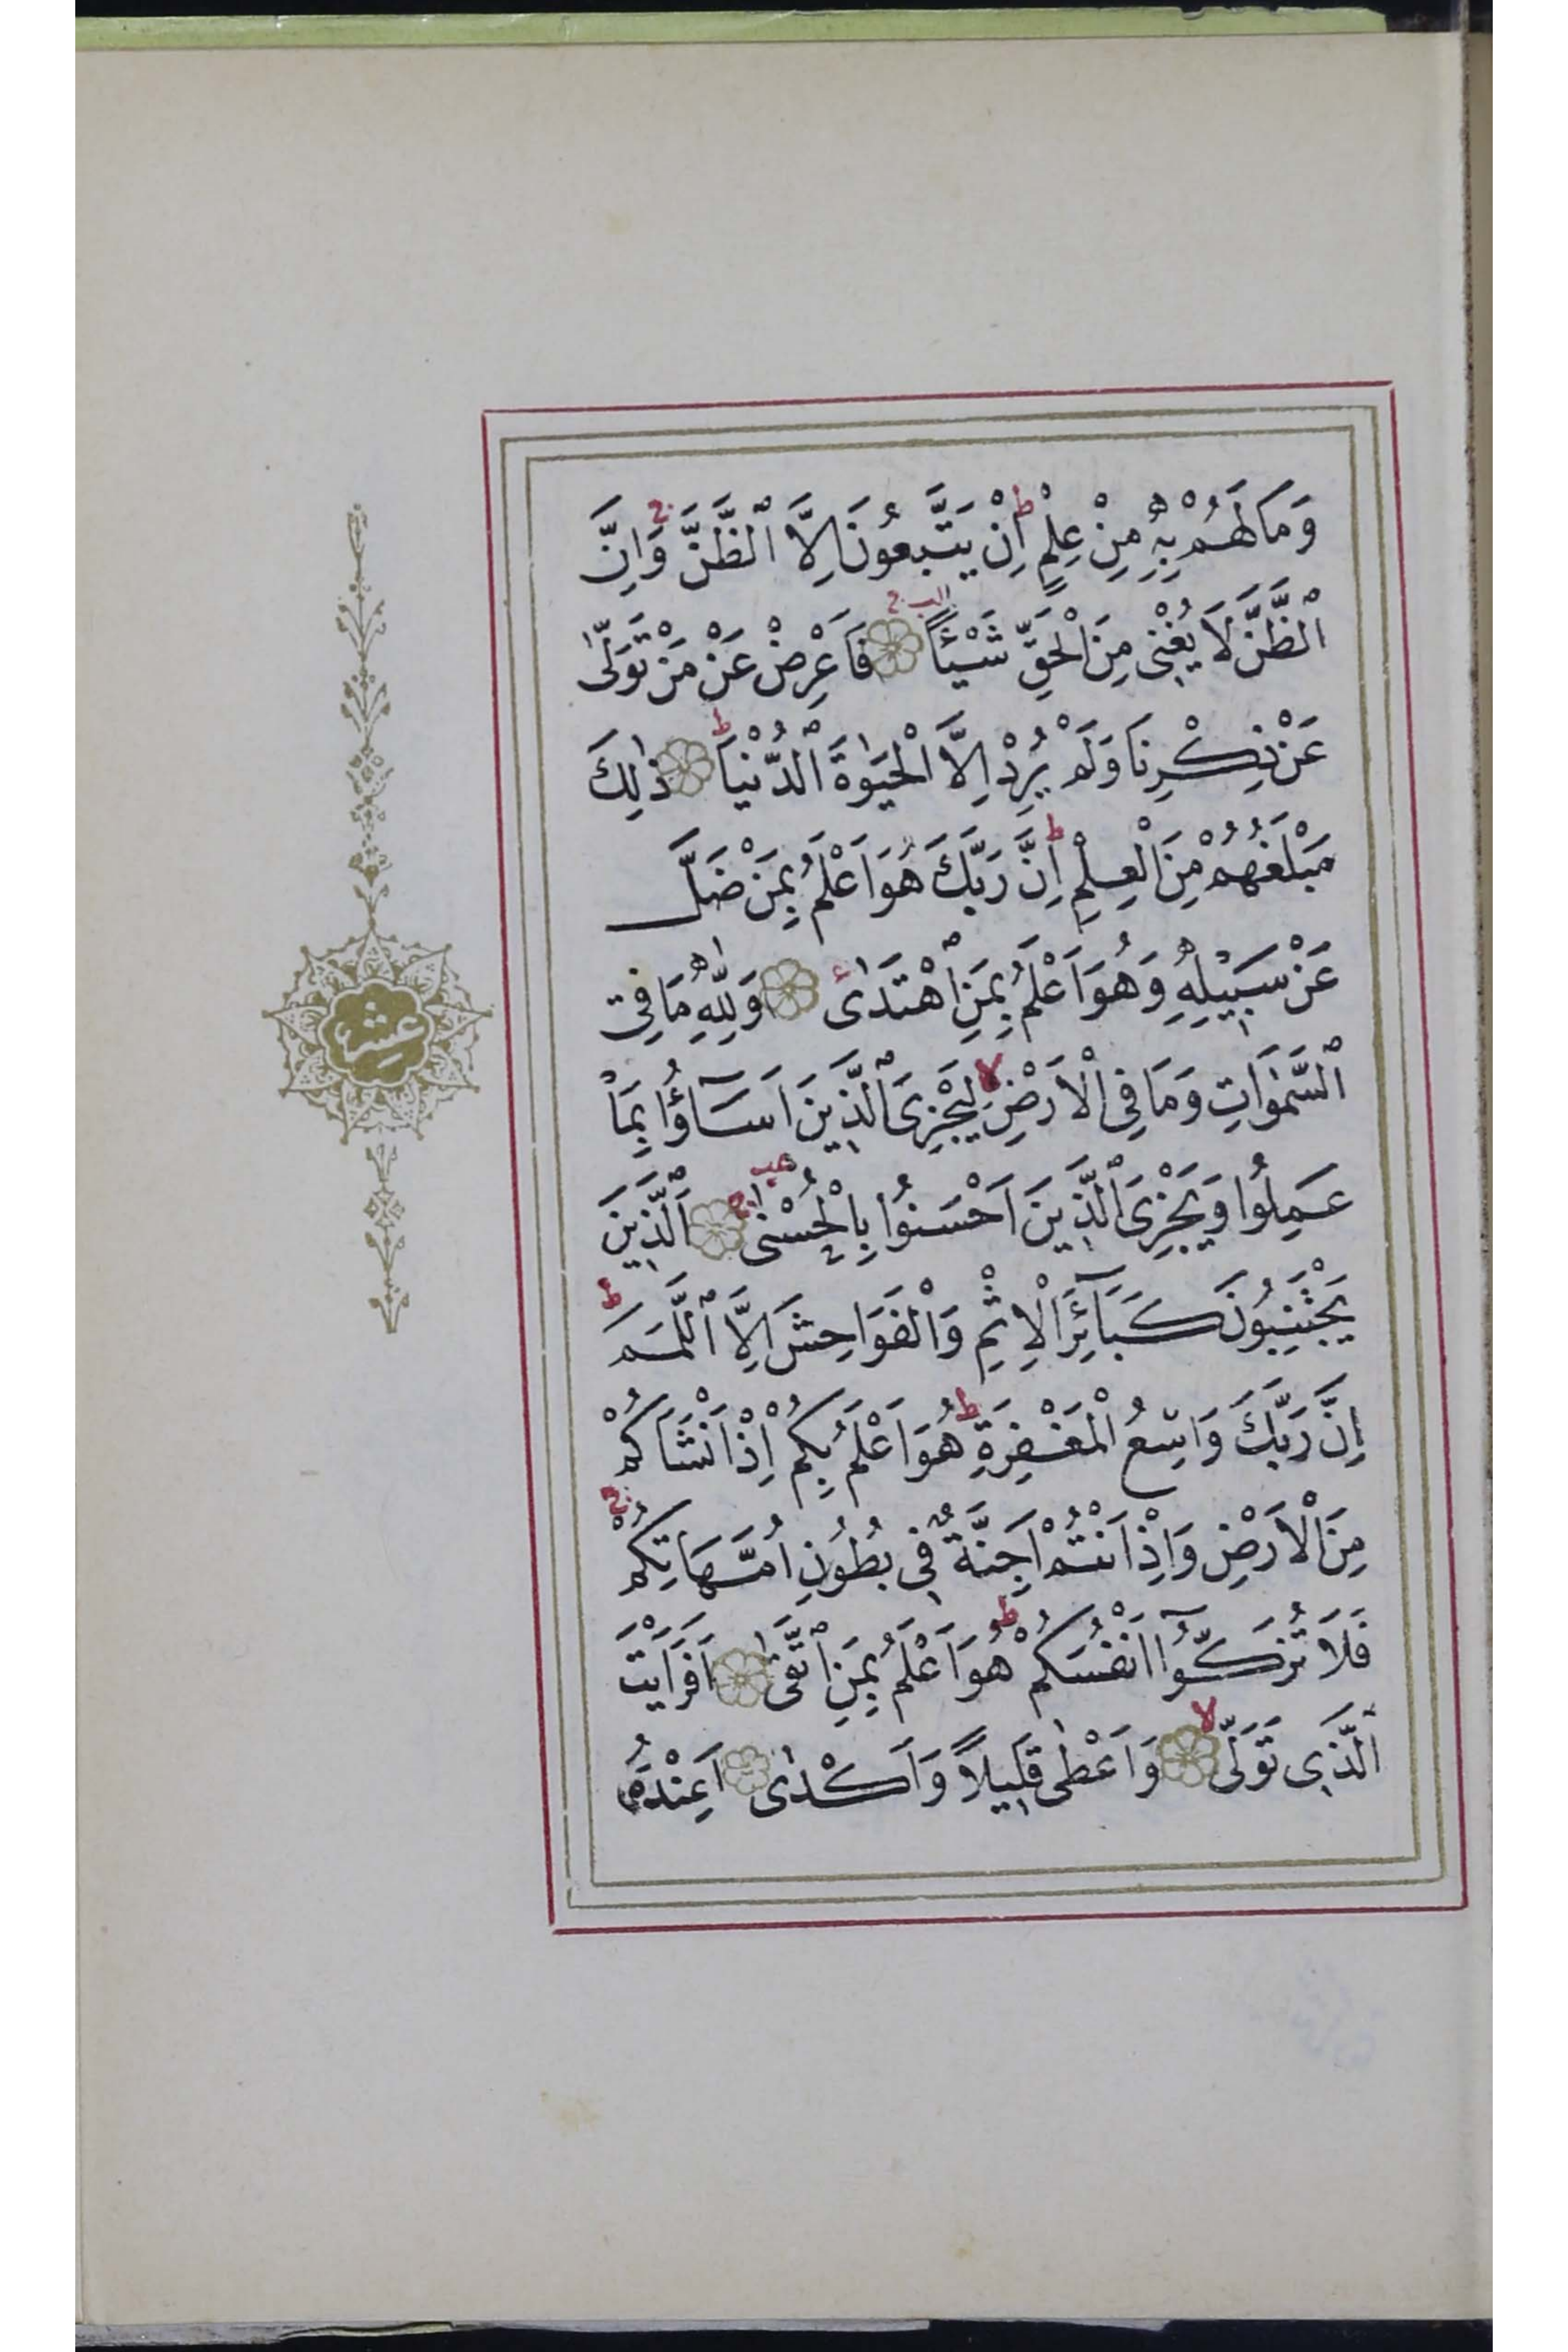 وَمَا لَهُمْ بِهِ مِنْ عِلْمٍ ط اِنْ يَتَّبِعُونَ اِلَّا الظَّنَّ ج وَاِنَّ
الظَّنَّ لَا يُغْنِى مِنَ الْحَقِّ شَيْئًا ج فَاَعْرِضْ عَنْ مَنْ تَوَلّٰى
عَنْ ذِكْرِنَا وَلَمْ يُرِدْ اِلَّا الْحَيٰوةَ الدُّنْيَا ط ذٰلِكَ
مَبْلَغُهُمْ مِنَ الْعِلْمِ ط اِنَّ رَبَّكَ هُوَ اَعْلَمُ بِمَنْ ضَلَّ
عَنْ سَبِيلِهِ وَهُوَ اَعْلَمُ بِمَنِ اهْتَدٰى وَلِلّٰهِ مَا فِى
السَّمٰوَاتِ وَمَا فِى الْاَرْضِ لا لِيَجْزِىَ الَّذِينَ اَسَآؤُا بِمَا
عَمِلُوا وَيَجْزِىَ الَّذِينَ اَحْسَنُوا بِالْحُسْنٰى ج اَلَّذِينَ
يَجْتَنِبُونَ كَبَآئِرَ الْاِثْمِ وَالْفَوَاحِشَ اِلَّا اللَّمَمَ ط
اِنَّ رَبَّكَ وَاسِعُ الْمَغْفِرَةِ ط هُوَ اَعْلَمُ بِكُمْ اِذْ اَنْشَاَكُمْ
مِنَ الْاَرْضِ وَاِذْ اَنْتُمْ اَجِنَّةٌ فِى بُطُونِ اُمَّهَاتِكُمْ ج
فَلَا تُزَكُّوآ اَنْفُسَكُمْ ط هُوَ اَعْلَمُ بِمَنِ اتَّقٰى اَفَرَاَيْتَ
الَّذِى تَوَلّٰى لا وَاَعْطٰى قَلِيلًا وَاَكْدٰى اَعِنْدَهُ
عشر